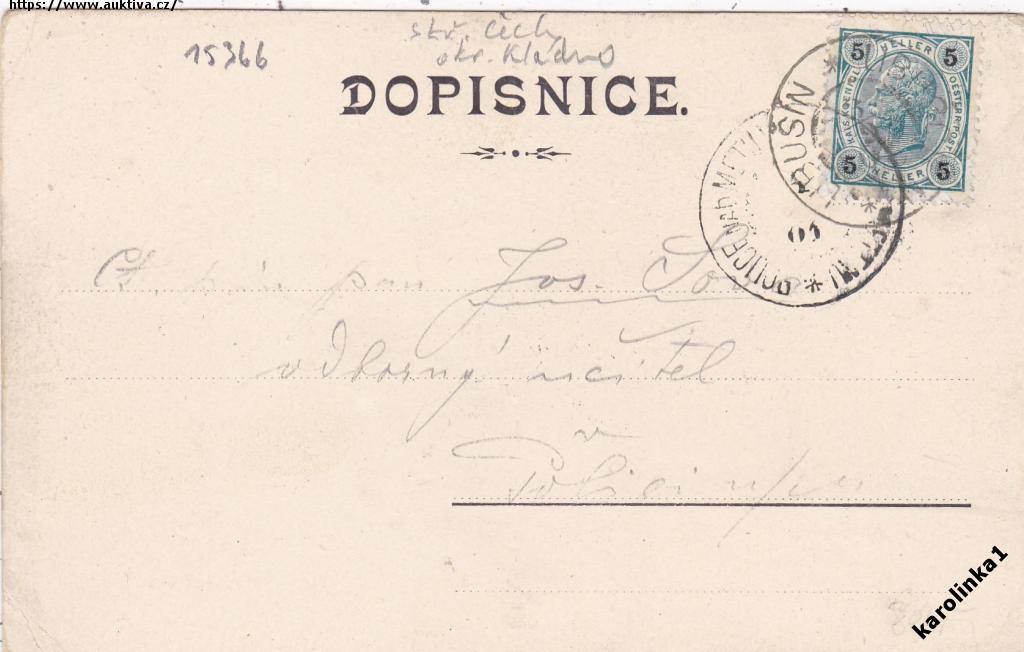 https://www.auktiva.cz/
15366
stř. Čechy
okr. Kladno
DOPISNICE.
5 HELLER 5
KAIS.KOEN.
OESTERR.POST
5 HELLER 5
LIBUŠÍN
01
Ct. pán pan Jos.
odborný učitel
v
karolinka1